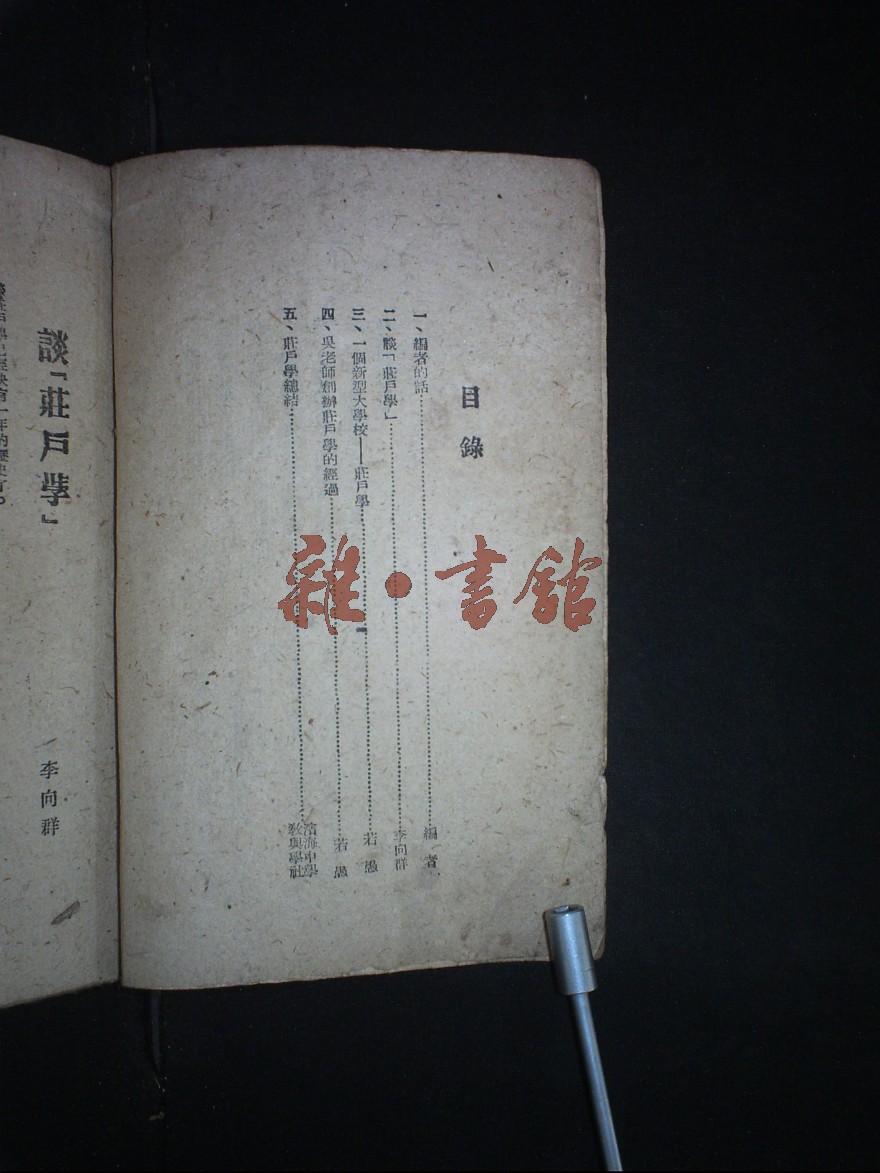 目錄
一、編者的話………編者
二、談「莊戶學」………李向群
三、一個新型大學校——莊戶學………若愚
四、吳老師創辦莊戶學的經過………若愚
五、莊戶學總結………濱海中學教與學社
雜·書館
談「莊戶學」
李向群